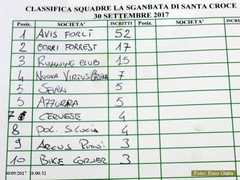 CLASSIFICA SQUADRE LA SGANBATA DI SANTA CROCE
30 SETTEMBRE 2017
Posiz. SOCIETA' ISCRITTI Posiz. SOCIETA' ISCRITTI
1 AVIS FORLÌ 52
2 CORRI FORREST 17
3 RUNNING CLUB 15
4 NUOVA VIRTUS 7
5 SEVEN 5
5 AZZURRA 5
7 CERVESE 4
8 POL. 4
9 3
10 BIKE CORNER 3
30/09/2017